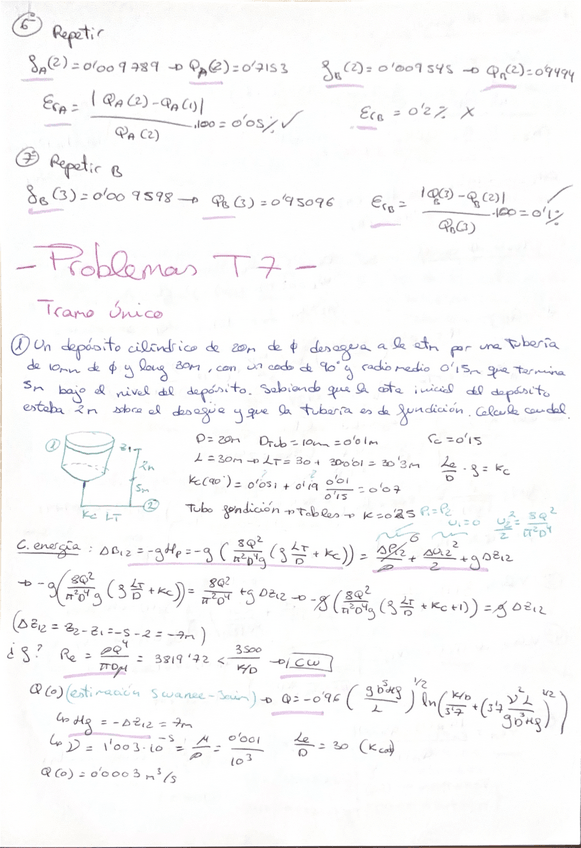 6º Repetir
fA(2) = 0'009789 → QA(2) = 0'7153   fB(2) = 0'009545 → QB(2) = 0'9494
ErA = |QA(2) - QA(1)| / QA(2) · 100 = 0'05% ✓   ErB = 0'2% X
7º Repetir B
fB(3) = 0'009598 → QB(3) = 0'95096   ErB = |QB(3) - QB(2)| / QB(3) · 100 = 0'1% ✓
- Problemas T7 -
Tramo Único
① Un depósito cilíndrico de 20m de ϕ desagua a la atm por una tubería
de 10mm de ϕ y long 30m, con un codo de 90° y radio medio 0'15m que termina
5m bajo el nivel del depósito. Sabiendo que la cota inicial del depósito
estaba 2m sobre el desagüe y que la tubería es de fundición. Calcula caudal.
① z1 2m 5m ② Kc LT
D = 20m   DTub = 10mm = 0'01m   rc = 0'15
L = 30m → LT = 30 + 30·0'01 = 30'3m   Le/D · f = Kc
Kc(90°) = 0'051 + 0'19 0'01/0'15 = 0'07
Tubo fundición → Tablas → K = 0'25   P1 = P2   v1 = 0   v2²/2 = 8Q²/π²D⁴
C. energía: ΔB12 = -gHp = -g (8Q²/π²D⁴g (f LT/D + Kc)) = ΔP12/ρ + Δv12²/2 + gΔz12
→ -g (8Q²/π²D⁴g (f LT/D + Kc)) = 8Q²/π²D⁴ + gΔz12 → -g (8Q²/π²D⁴g (f LT/D + Kc + 1)) = gΔz12
(Δz12 = z2 - z1 = -5 - 2 = -7m)
¿f? Re = ρQ4/πDμ = 3819'72 < 3500/K/D → CW
Q(0) (estimación Swanee-Jain) → Q = -0'96 (gD⁵Hf/L)^1/2 ln(K/D/3'7 + (3'17 ν²L/gD³Hf)^1/2)
↳ Hf = -Δz12 = 7m
↳ ν = 1'003·10⁻⁵ = μ/ρ = 0'001/10³   Le/D = 30 (Kcod)
Q(0) = 0'0003 m³/s